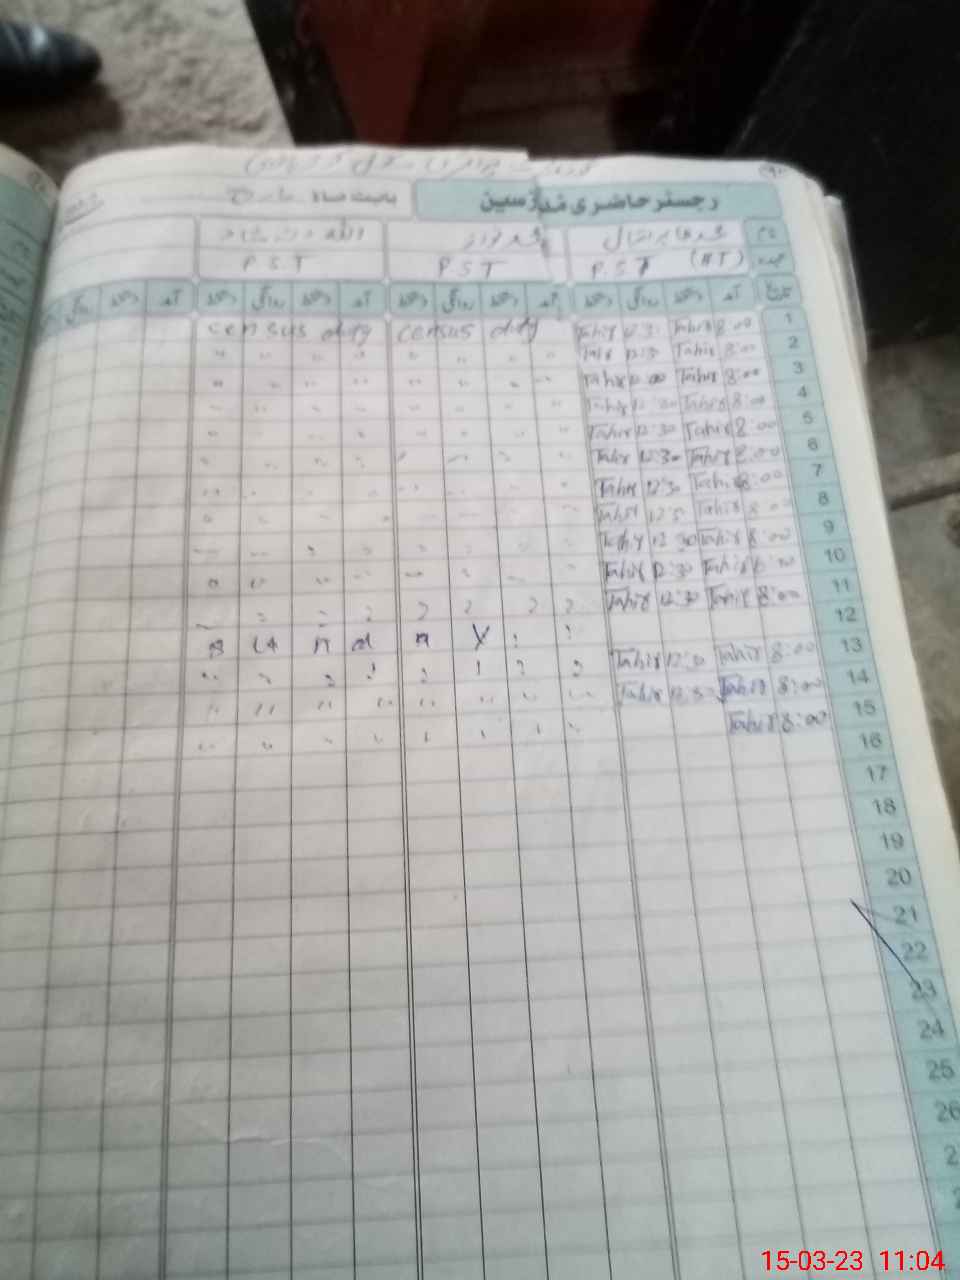 رجسٹر حاضری مدرسین بابت ماہ مارچ
نام محمد طاہر اقبال محمد نواز اللہ دتہ شاد
عہدہ P.S.T (HT) P.S.T P.S.T
تاریخ آمد دستخط روانگی دستخط آمد دستخط روانگی دستخط آمد دستخط روانگی دستخط آمد دستخط روانگی
census duty census duty Tahir 12:30 Tahir 8:00 1
Tahir 12:30 Tahir 8:00 2
Tahir 12:00 Tahir 8:00 3
Tahir 12:30 Tahir 8:00 4
Tahir 12:30 Tahir 8:00 5
Tahir 12:30 Tahir 8:00 6
Tahir 12:30 Tahir 8:00 7
Tahir Tahir 8:00 8
12:30 Tahir 8:00 9
Tahir 12:30 Tahir 10
Tahir 12:30 Tahir 8:00 11
12
Tahir 12:30 Tahir 8:00 13
Tahir 12:30 Tahir 8:00 14
Tahir 8:00 15
16
17
18
19
20
21
22
23
24
25
26
15-03-23 11:04